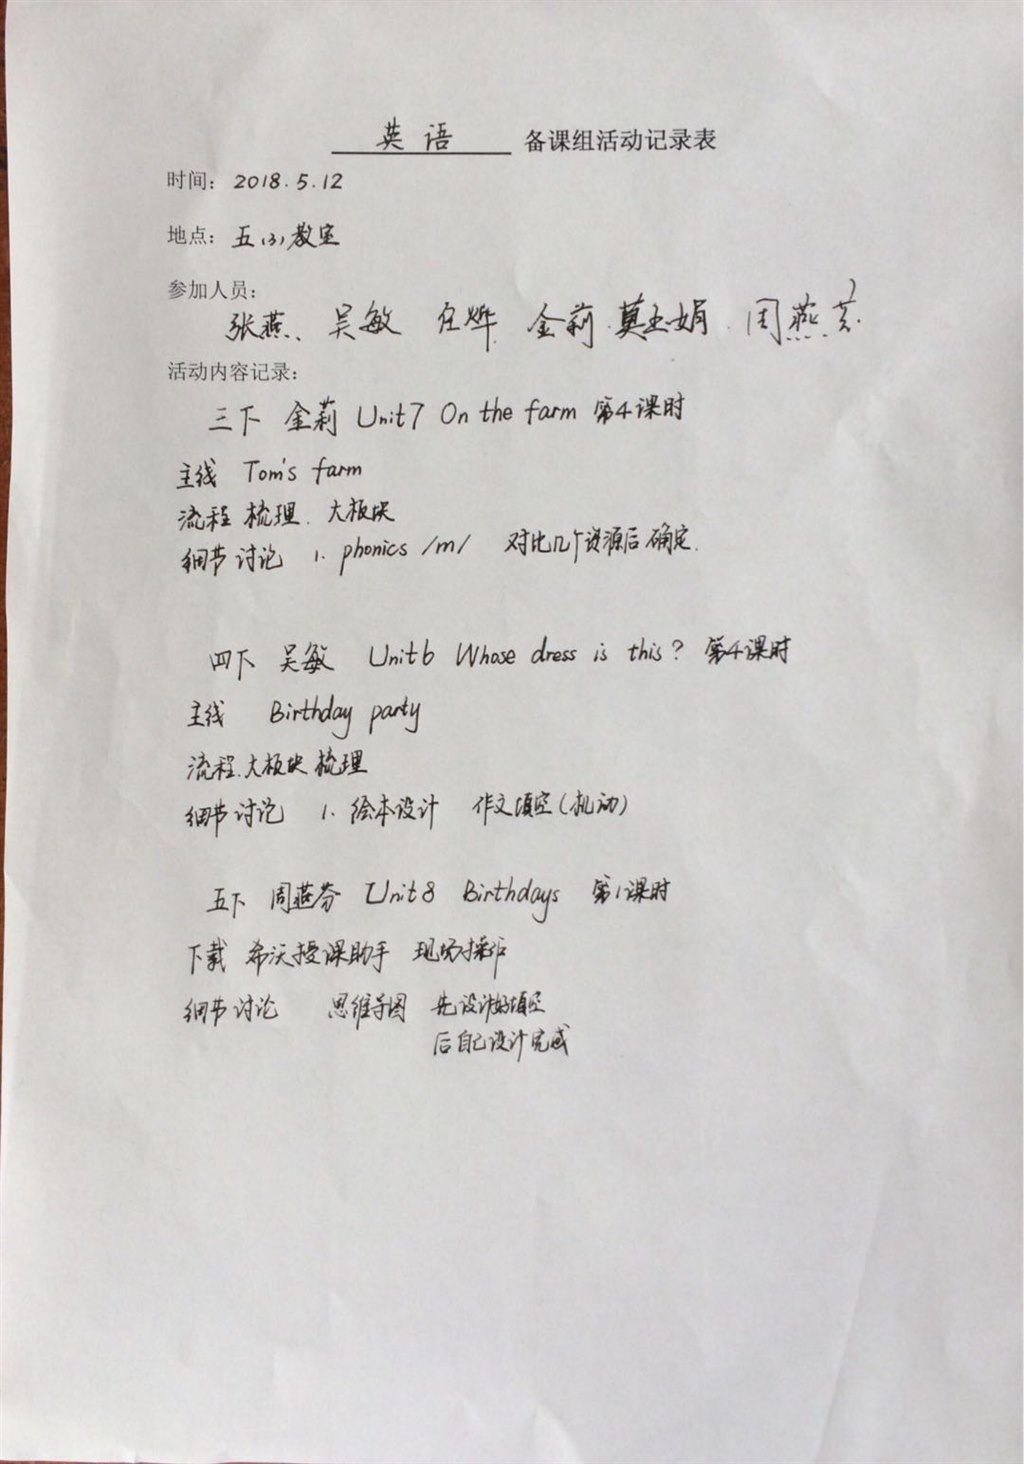 英语 备课组活动记录表
时间：2018.5.12
地点：五(3)教室
参加人员：
张燕、吴敏 任烨 金莉 莫玉娟 周燕芬
活动内容记录：
三下 金莉 Unit7 On the farm 第4课时
主线 Tom's farm
流程 梳理、大板块
细节讨论 1. phonics /m/ 对比几个资源后确定.
四下 吴敏 Unit6 Whose dress is this? 第4课时
主线 Birthday party
流程、大板块梳理
细节讨论 1. 绘本设计 作文填空(机动)
五下 周燕芬 Unit8 Birthdays 第1课时
下载 希沃授课助手 现场操作
细节讨论 思维导图 先设计好填空
后自己设计完成